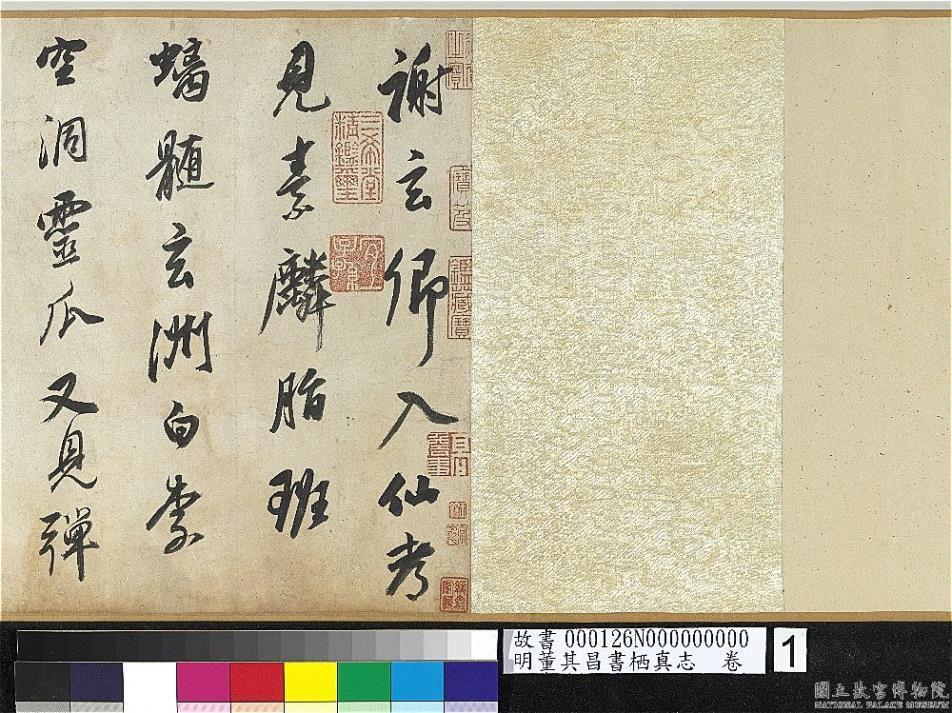 謝玄卿入仙考
見素麟脂班
螭髓玄洲白柰
空洞靈瓜又見彈
三希堂精鑑璽
宜子孫
故書 000126N000000000
明董其昌書栖真志 卷
1
國立故宮博物院
NATIONAL PALACE MUSEUM